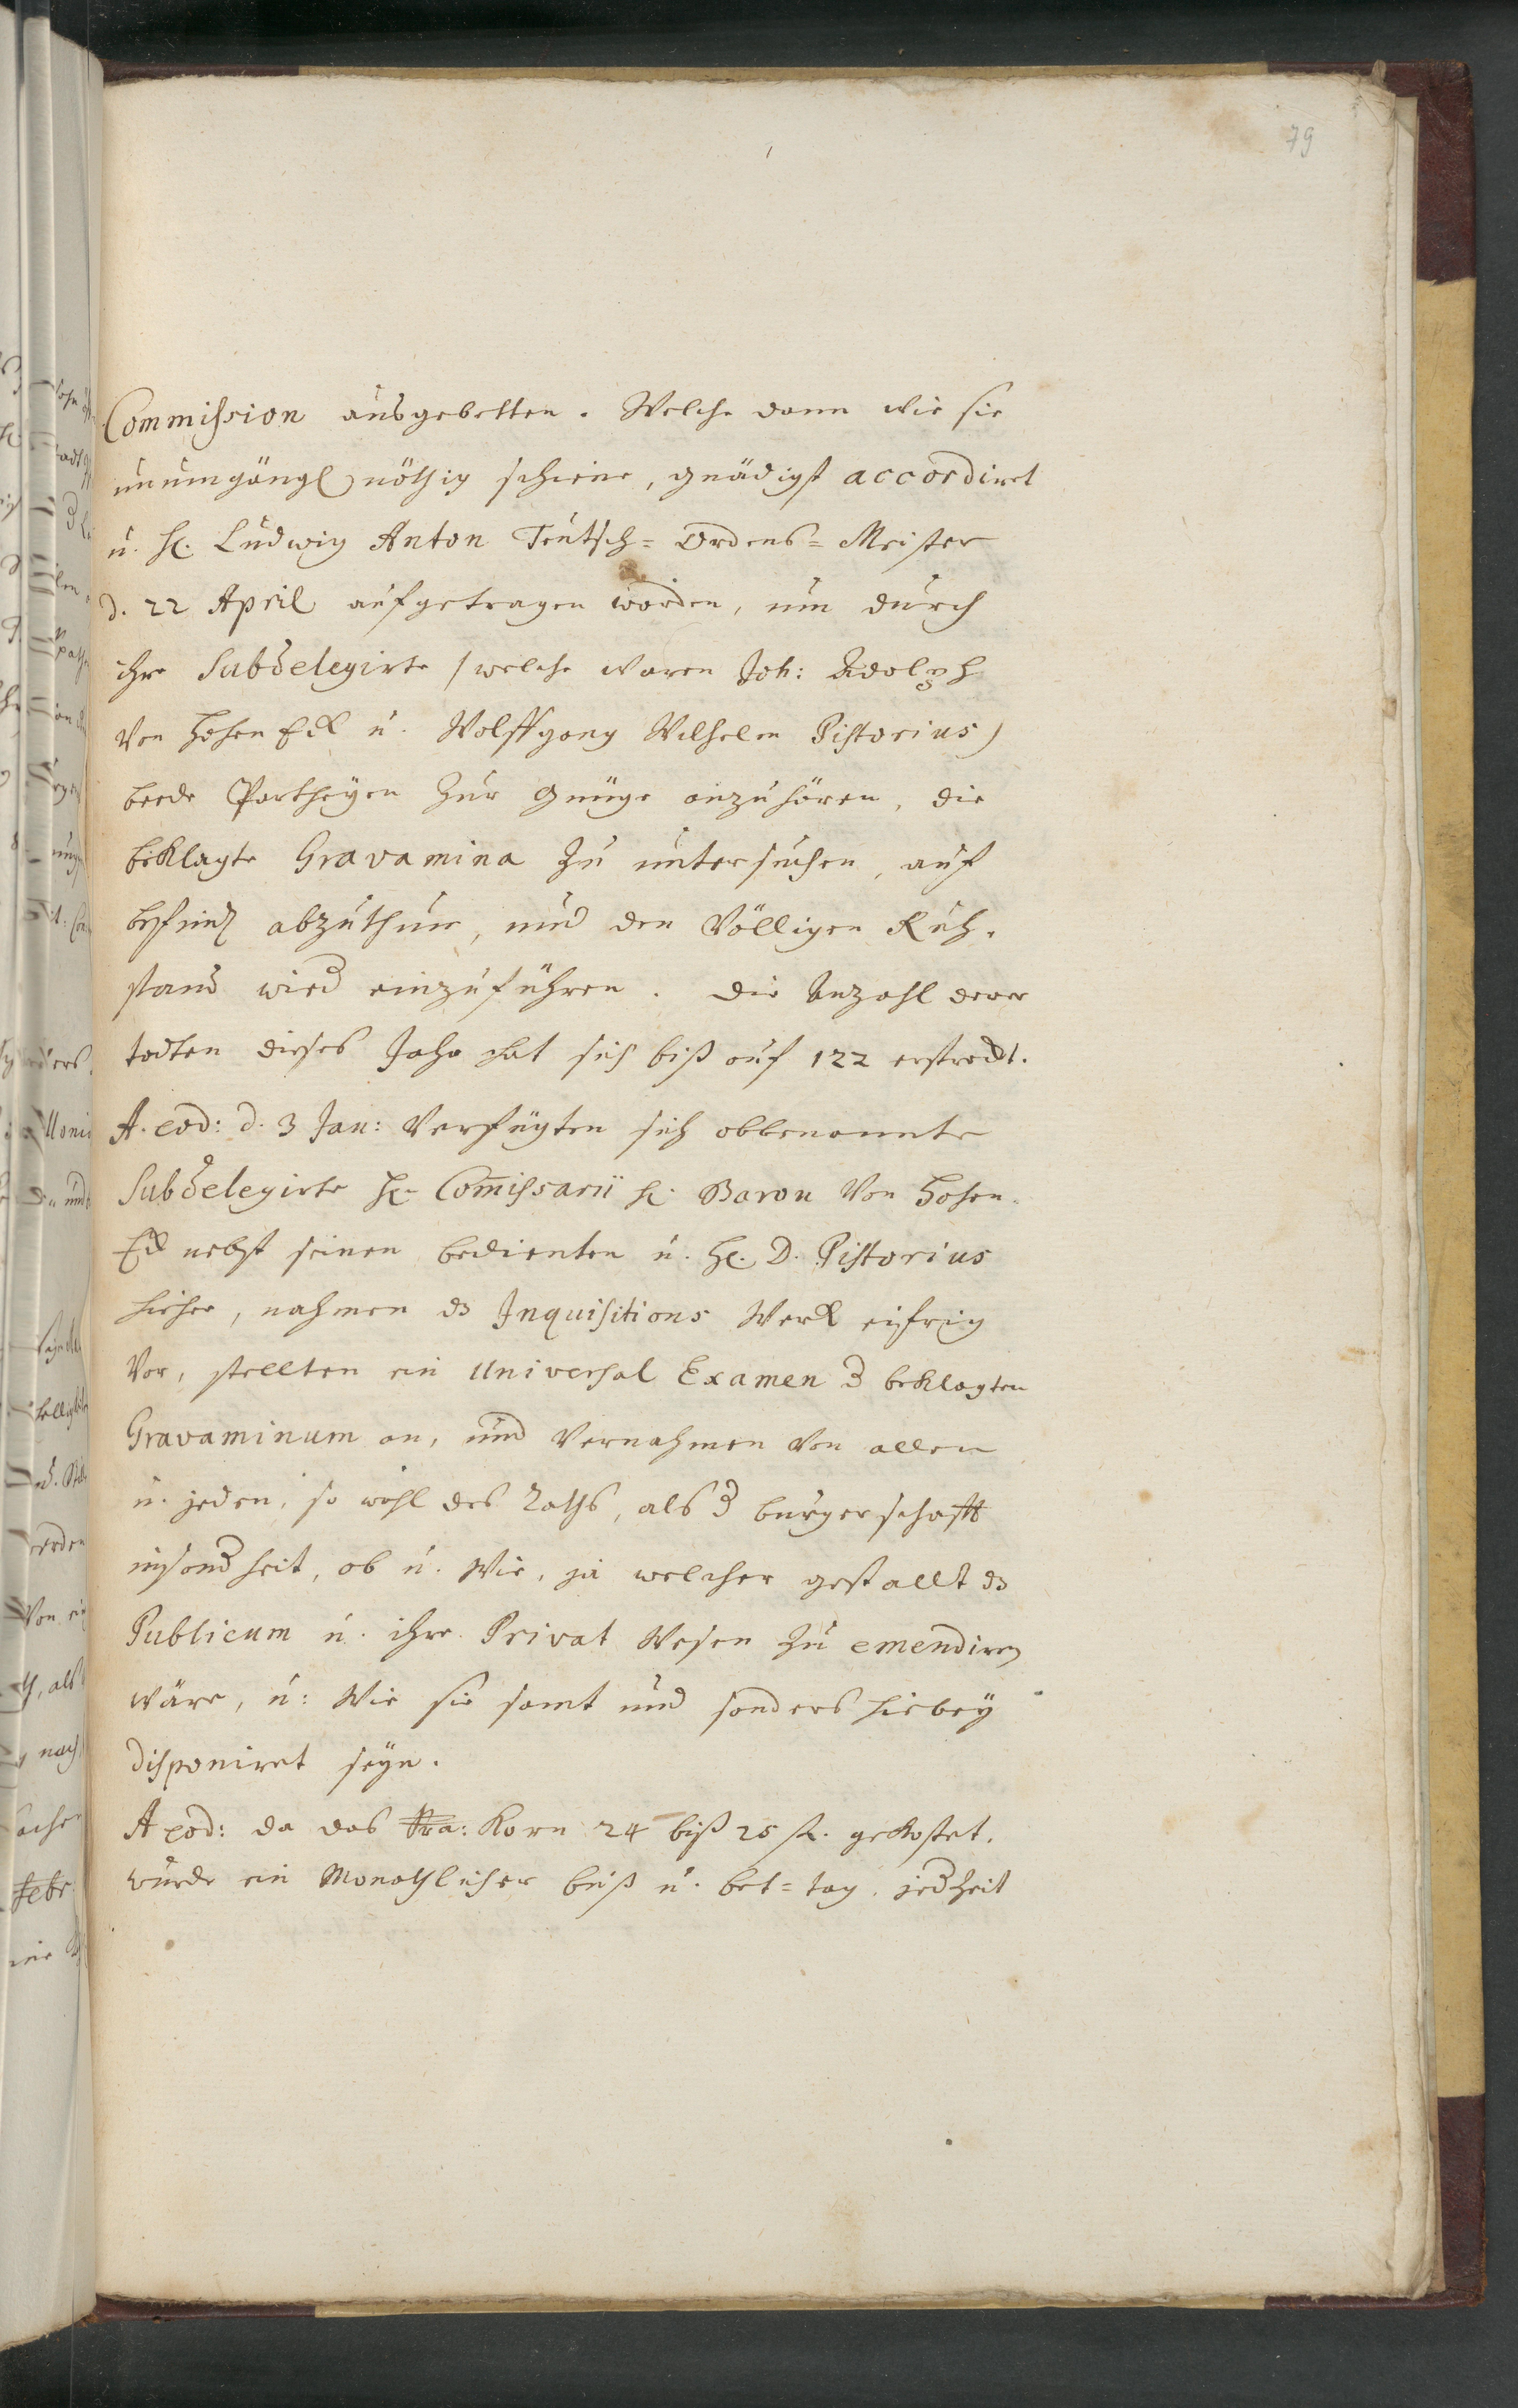 79
Commission ausgebetten. Welche dann wie sie
unumgängl. nöthig schiene, gnädigst accordiret
u. H. Ludwig Anton Teutsch=Ordens=Meister
d. 22 April aufgetragen worden, um durch
ihre Subdelegirte /welche waren Joh: Adolph
von Hohen Eck u. Wolffgang Wilhelm Pistorius)
beede Partheyen zur Gnüge anzuhören, die
beklagte Gravamina zu untersuchen, auf
befind. abzuthun, und den völligen Ruh-
stand wied einzuführen. Die Anzahl derer
todten dieses Jahr hat sich biß auf 122 erstreckt.
A. eod: d. 3 Jan: verfügten sich obbenannte
Subdelegirte H. Com̄issarii H. Baron von Hohen-
Eck nebst seinen bedienten u. H. D. Pistorius
hieher, nahmen ds Inquisitions Werck eyfrig
vor, stellten ein Universal Examen d beklagten
Gravaminum an, und vernahmen von allen
u. jeden, so wohl des Raths, als d burgerschafft
insondheit, ob u. wie, ja welcher gestallt ds
Publicum u. ihre Privat Wesen zu emendiren
wäre, u: wie sie samt und sonders hiebey
disponiret seyn.
A eod: da das Korn 24 biß 25 fl. gekostet,
wurde ein Monathlicher buß u. bet=tag, jedzeit